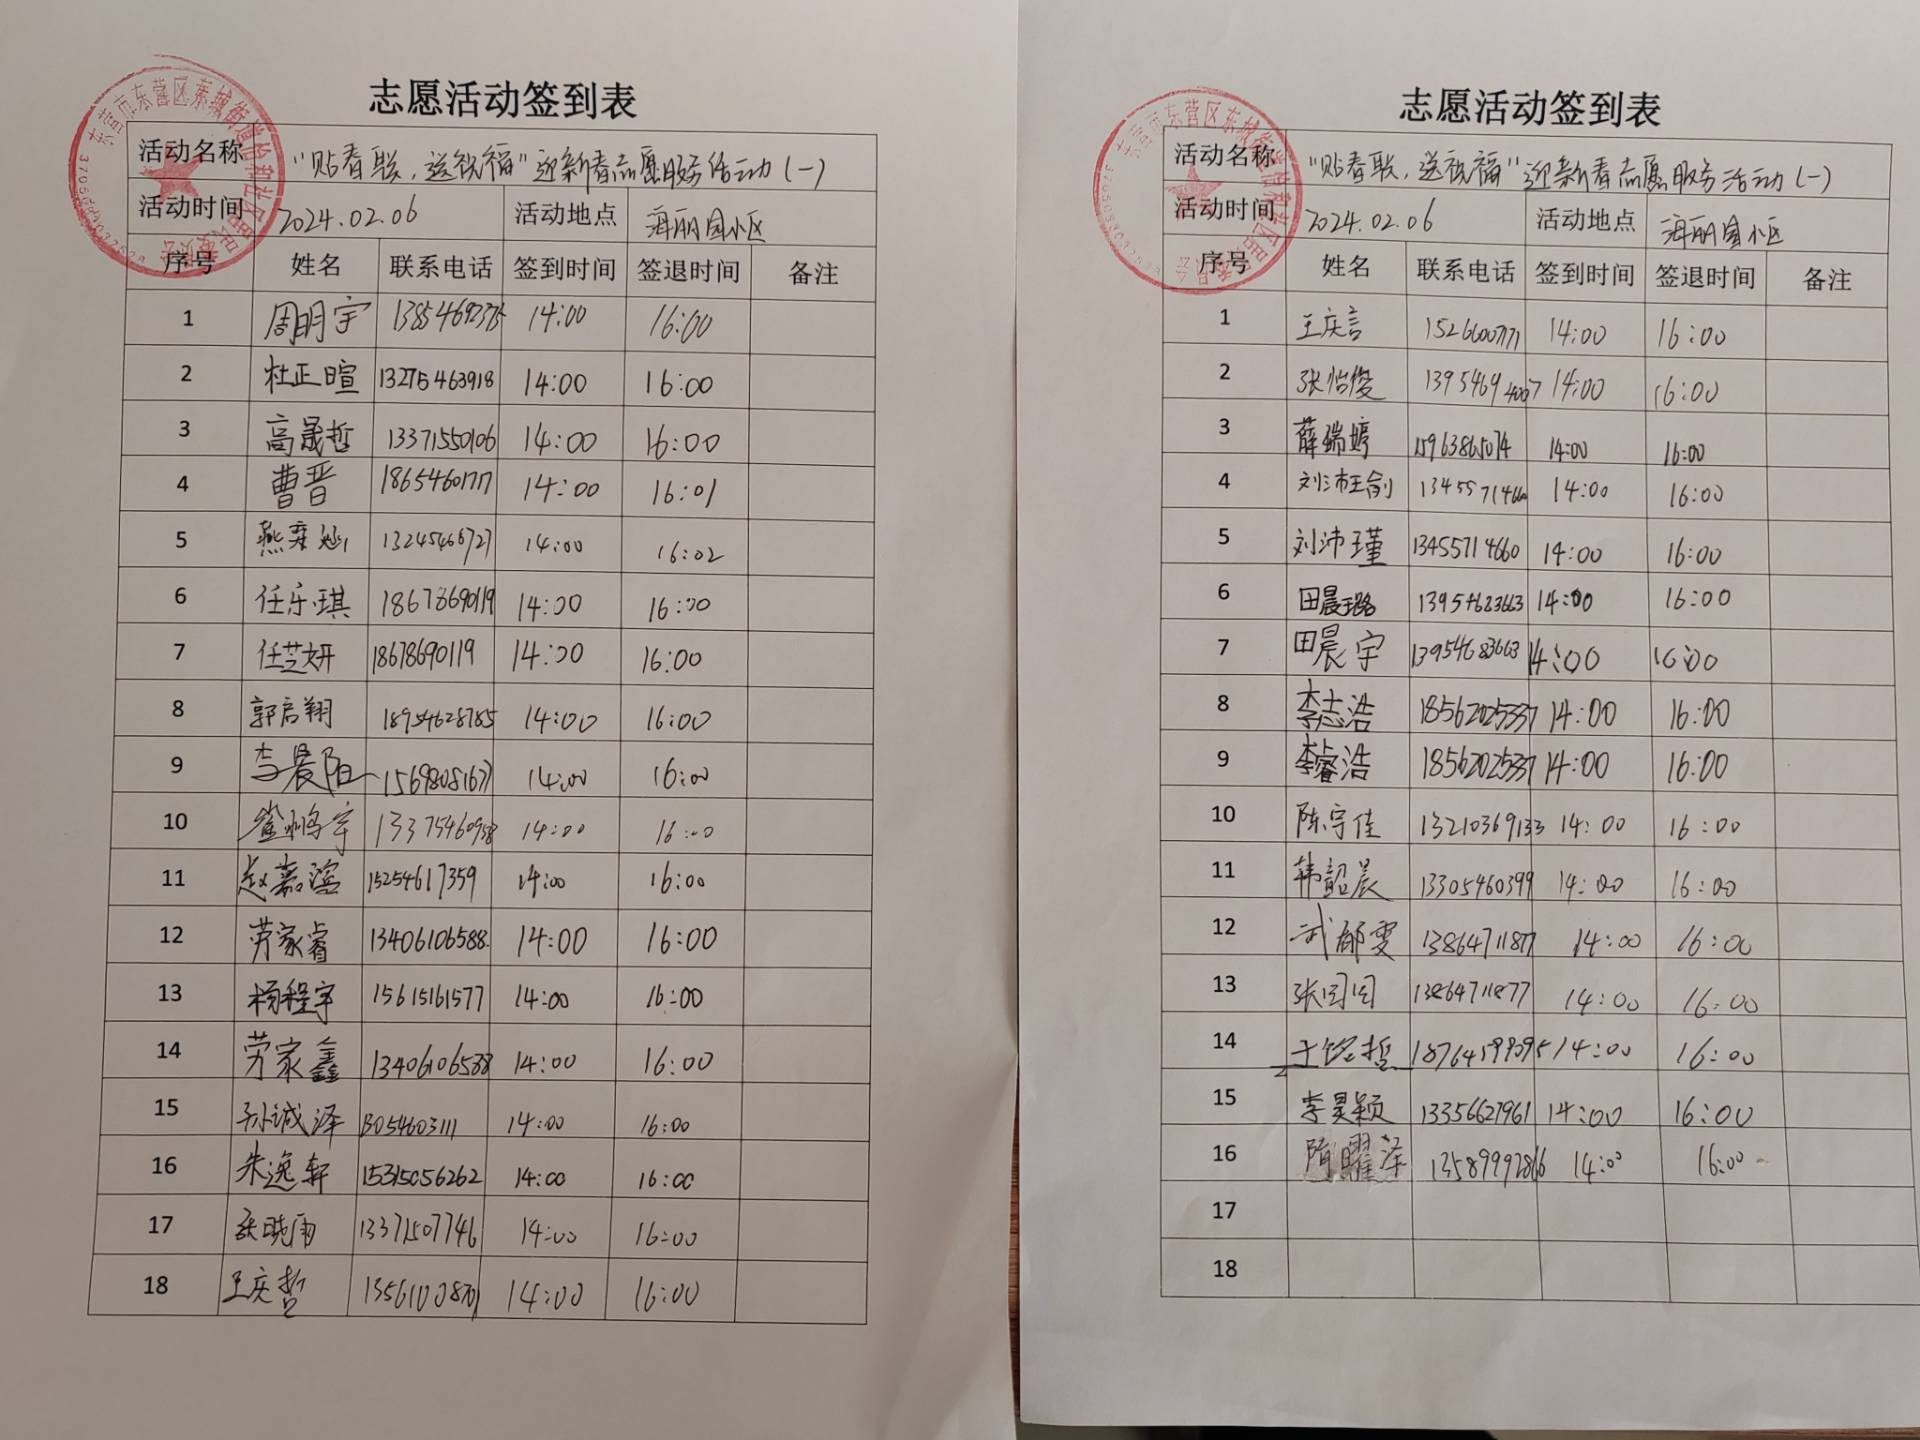 志愿活动签到表
活动名称 “贴春联,送祝福”迎新春志愿服务活动(一)
活动时间 2024.02.06 活动地点 海丽园小区
序号 姓名 联系电话 签到时间 签退时间 备注
1 周明宇 14:00 16:00
2 杜正暄 13275463918 14:00 16:00
3 高晟哲 13371550106 14:00 16:00
4 曹晋 18654601717 14:00 16:01
5 13245466727 14:00 16:02
6 任乐琪 18678690119 14:00 16:00
7 任芝妍 18678690119 14:00 16:00
8 郭启翔 18954628785 14:00 16:00
9 李晨阳 14:00 16:00
10 14:00 16:00
11 赵嘉滢 15254617359 14:00 16:00
12 劳家睿 13406106588 14:00 16:00
13 杨程宇 15615161577 14:00 16:00
14 劳家鑫 13406106588 14:00 16:00
15 孙诚泽 13054603111 14:00 16:00
16 朱逸轩 15315056262 14:00 16:00
17 张晓雨 13371507746 14:00 16:00
18 王庆哲 14:00 16:00
志愿活动签到表
活动名称 “贴春联,送祝福”迎新春志愿服务活动(一)
活动时间 2024.02.06 活动地点 海丽园小区
序号 姓名 联系电话 签到时间 签退时间 备注
1 王庆言 14:00 16:00
2 张怡俊 13954694007 14:00 16:00
3 薛瑞婷 15963865074 14:00 16:00
4 刘沛瑜 13455714660 14:00 16:00
5 刘沛瑾 13455714660 14:00 16:00
6 田晨璐 13954683663 14:00 16:00
7 田晨宇 13954683663 14:00 16:00
8 李志浩 18562025337 14:00 16:00
9 李睿浩 18562025337 14:00 16:00
10 陈守佳 13210369133 14:00 16:00
11 韩韶晨 13305460399 14:00 16:00
12 武郁雯 13864711877 14:00 16:00
13 13864711877 14:00 16:00
14 14:00 16:00
15 李昊颖 13356627961 14:00 16:00
16 隋曜泽 13589992866 14:00 16:00
17
18